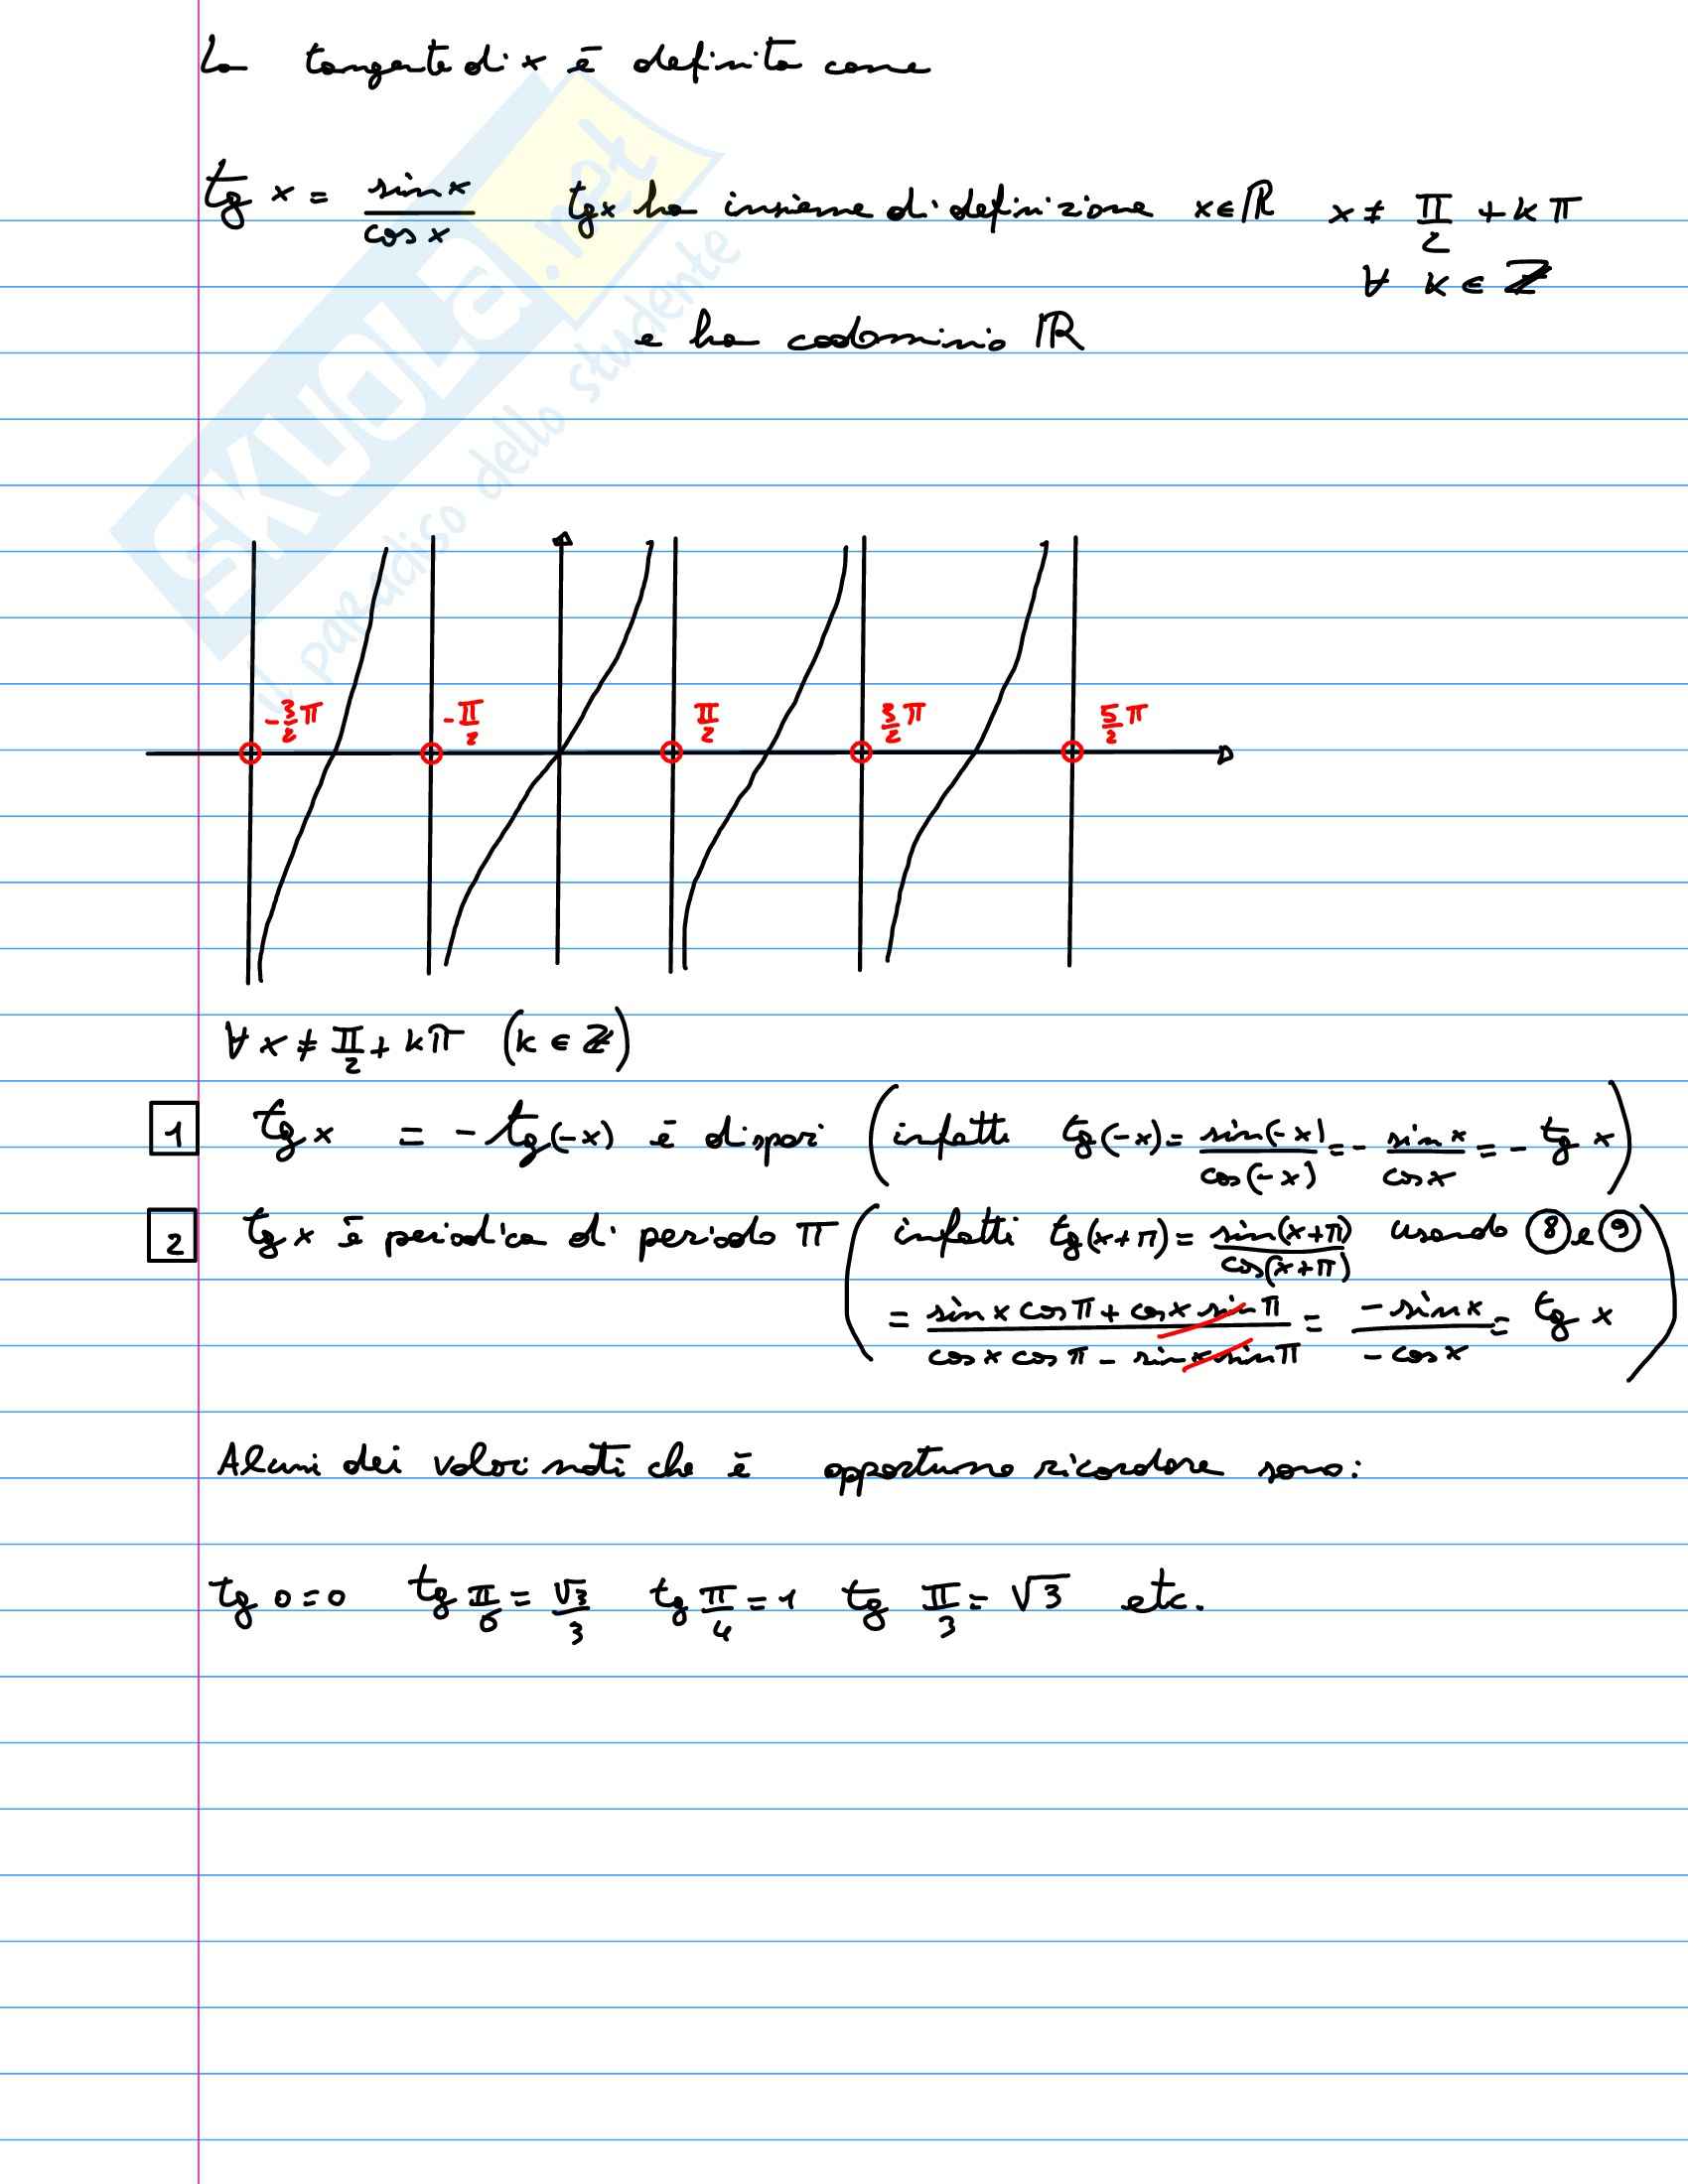 La tangente di x è definita come
tg x = sin x / cos x   tg x ha insieme di definizione x ∈ ℝ   x ≠ π/2 + kπ
∀ k ∈ ℤ
e ha codominio ℝ
SKUOLA.net
il paradiso dello studente
-3/2 π   -π/2   π/2   3/2 π   5/2 π
∀ x ≠ π/2 + kπ (k ∈ ℤ)
1 tg x = - tg(-x) è dispari (infatti tg(-x) = sin(-x)/cos(-x) = - sin x/cos x = - tg x)
2 tg x è periodica di periodo π (infatti tg(x+π) = sin(x+π)/cos(x+π) usando 8 e 9
= (sin x cos π + cos x sin π)/(cos x cos π - sin x sin π) = -sin x/-cos x = tg x)
Alcuni dei valori noti che è opportuno ricordare sono:
tg 0 = 0   tg π/6 = √3/3   tg π/4 = 1   tg π/3 = √3   etc.